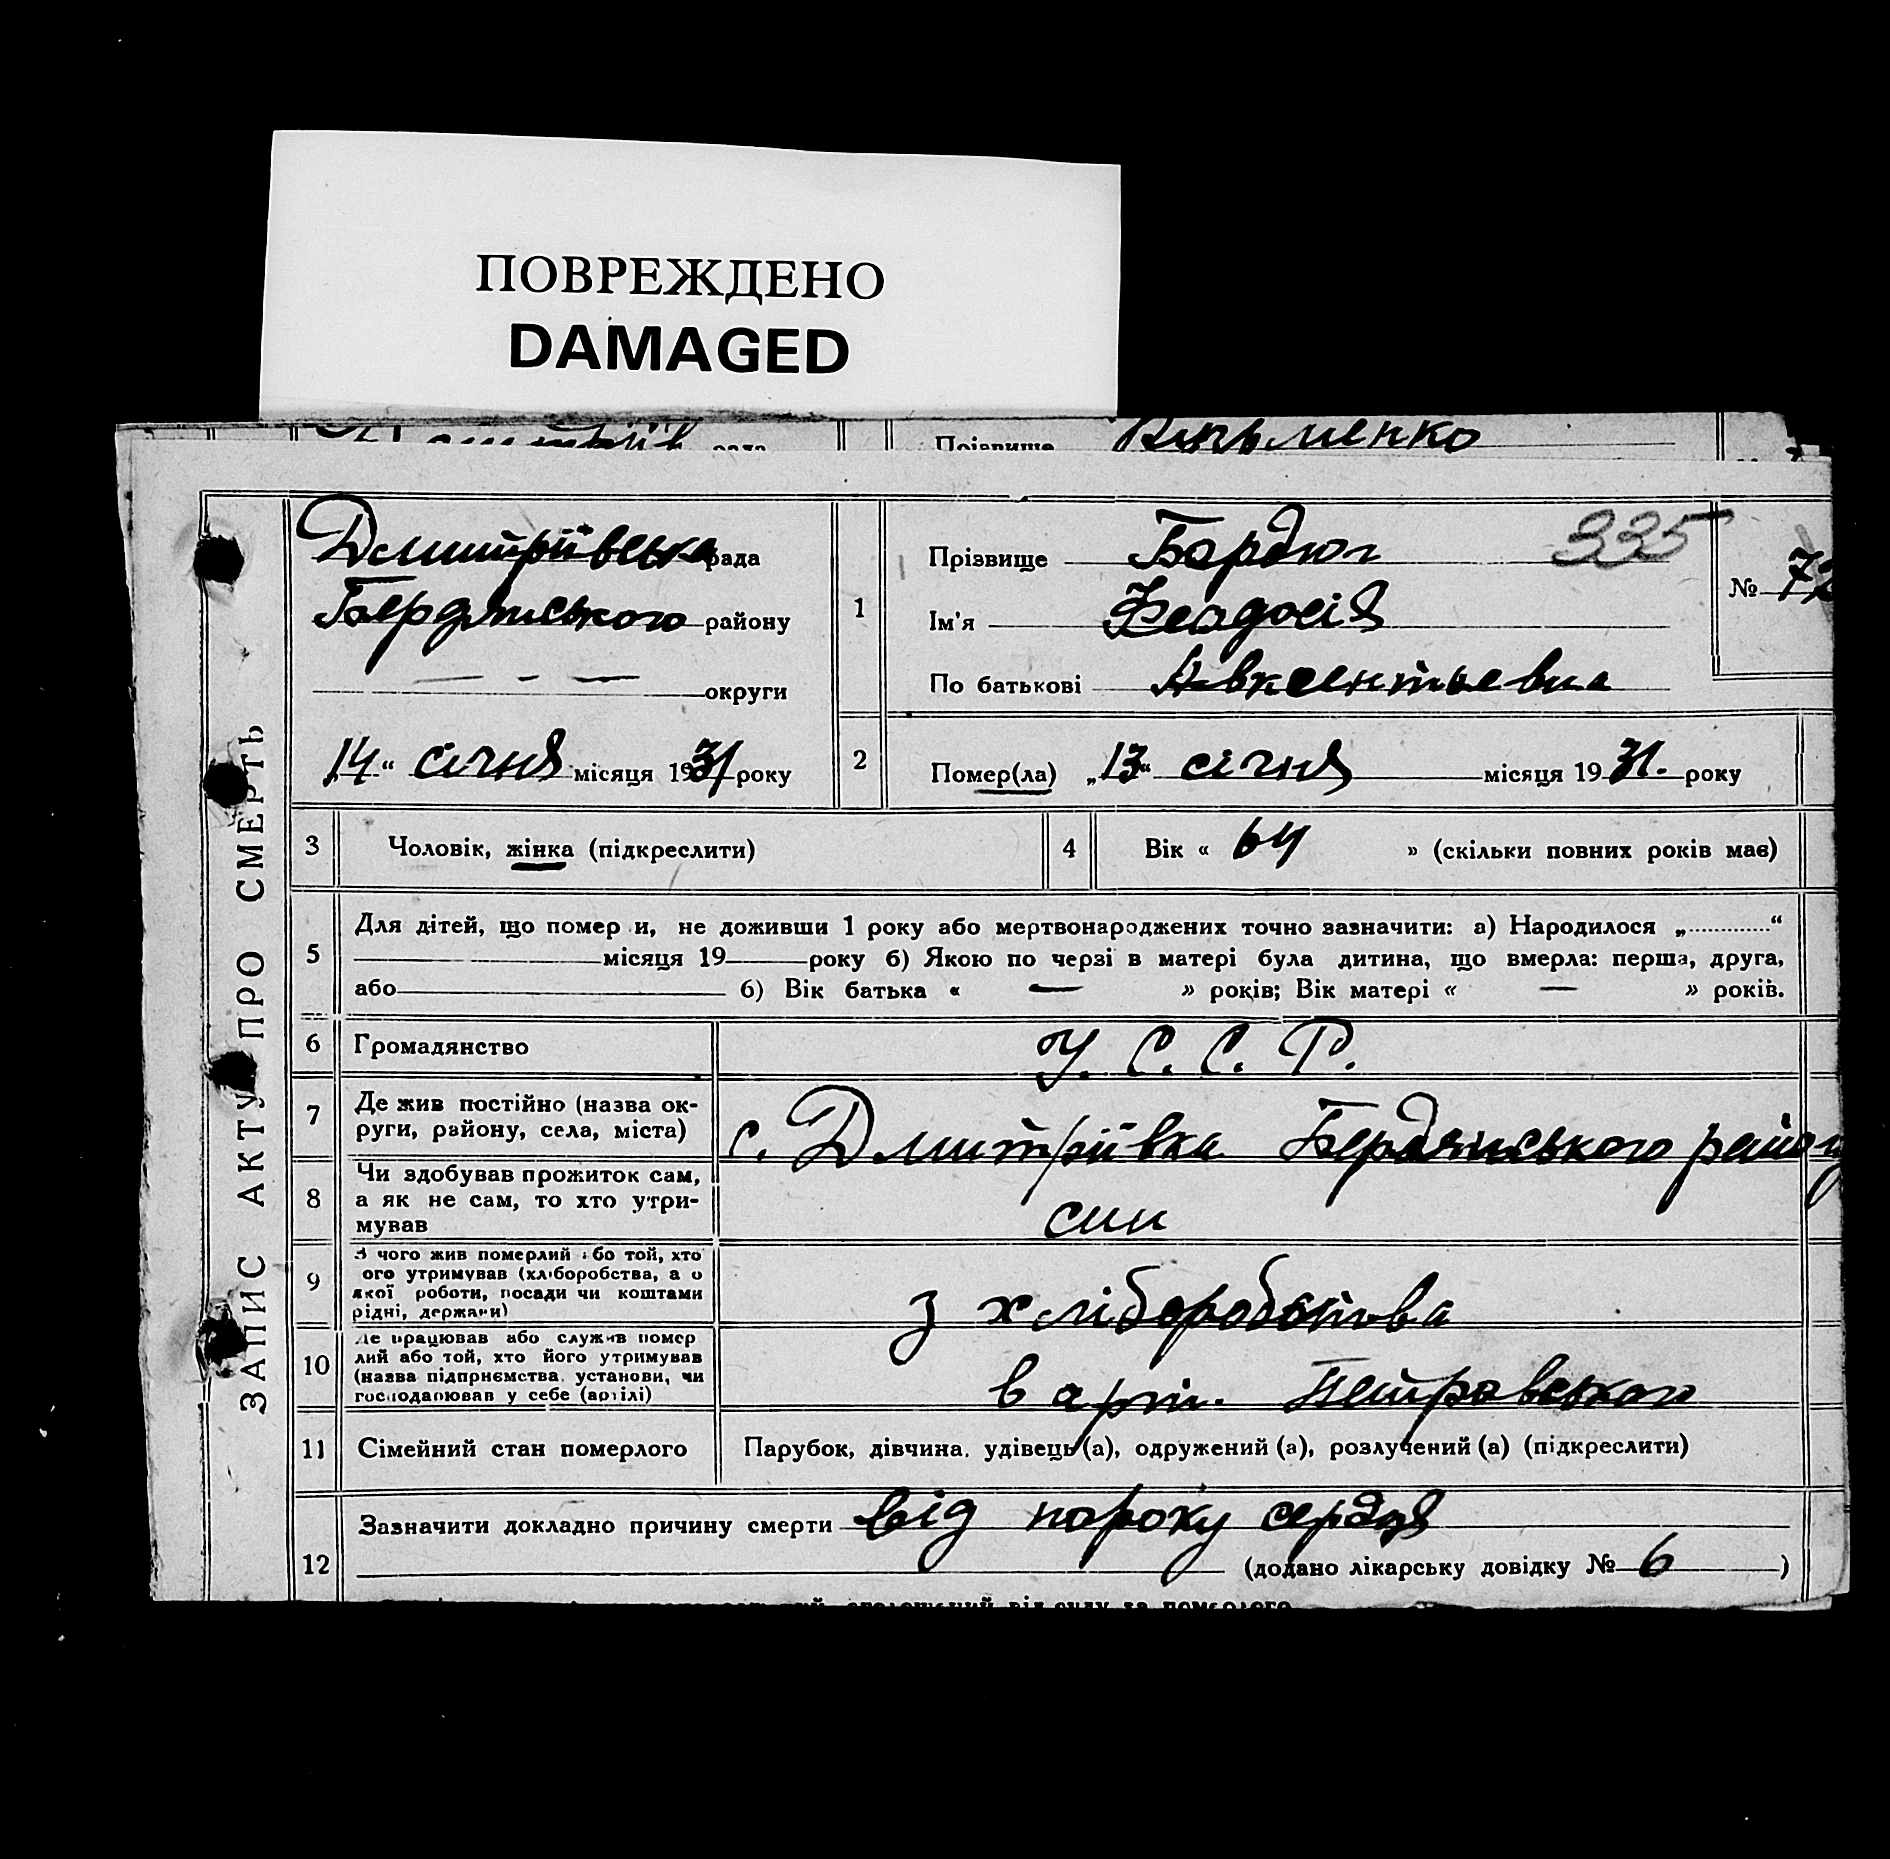 ПОВРЕЖДЕНО
DAMAGED
рада Прізвище
ЗАПИС АКТУ ПРО СМЕРТЬ
Дмитріївська рада
Бердянського району
— - — округи
„14“ січня місяця 1931 року
1
Прізвище Бардюг 335
Ім'я Феодосія
По батькові Авксентьевна
№ 72
2 Помер(ла) „13“ січня місяця 1931. року
3 Чоловік, жінка (підкреслити)
4 Вік « 64 » (скільки повних років має)
5 Для дітей, що помер и, не доживши 1 року або мертвонароджених точно зазначити: а) Народилося „..............“
місяця 19 року б) Якою по черзі в матері була дитина, що вмерла: перша, друга,
або б) Вік батька « — » років; Вік матері « — » років.
6 Громадянство У. С. С. Р.
7 Де жив постійно (назва ок-
руги, району, села, міста) с. Дмитріївка Бердянського району
8 Чи здобував прожиток сам,
а як не сам, то хто утри-
мував син
9 З чого жив померлий або той, хто
ого утримував (хліборобства, а о
якої роботи, посади чи коштами
рідні, держави) з хліборобства
10 Де працював або служив помер
лий або той, хто його утримував
(назва підприємства, установи, чи
господарював у себе (артілі) в арт. Петровського
11 Сімейний стан померлого Парубок, дівчина, удівець (а), одружений (а), розлучений (а) (підкреслити)
12 Зазначити докладно причину смерти від пороку сердця
(додано лікарську довідку № 6 )